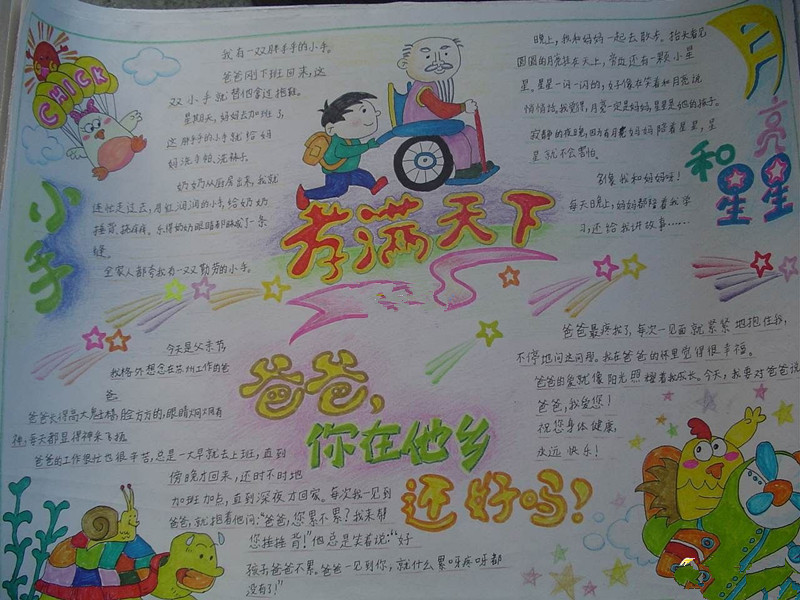 CHICK
小手
我有一双胖手手的小手。
爸爸刚下班回来,这
双小手就替他拿过拖鞋。
星期天,妈妈去加班了,
这胖手手的小手就给妈
妈洗手帕、洗袜子。
奶奶从厨房出来,我就
连忙走过去,用红润润的小手,给奶奶
捶背、
乐得奶奶眼睛都眯成了一条
缝。
全家人都夸我有一双勤劳的小手。
孝满天下
月亮和星星
晚上,我和妈妈一起去散步。抬头看见
圆圆的月亮挂在天上,旁边还有一颗小星
星。星星一闪一闪的,好像在笑着和月亮说
悄悄话。我觉得,月亮一定是妈妈,星星是她的孩子。
寂静的夜晚,因为有月亮妈妈陪着星星,星
星就不会害怕。
多像我和妈妈呀!
每天晚上,妈妈都陪着我学
习,还给我讲故事……
爸爸,
你在他乡
还好吗!
今天是父亲节
我格外想念在苏州工作的爸
爸。
爸爸长得高大魁梧,脸方方的,眼睛炯炯有
神,每天都显得神采飞扬。
爸爸的工作很忙也很辛苦,总是一大早就去上班,直到
傍晚才回来,还时不时地
加班加点,直到深夜才回家。每次我一见到
爸爸,就抱着他问:“爸爸,您累不累?我来帮
您捶捶背!”他总是笑着说:“好
孩子爸爸不累。爸爸一见到你,就什么累呀疼呀都
没有了!”
爸爸最疼我了,每次一见面就紧紧地抱住我,
不停地问这问那。我在爸爸的怀里觉得很幸福。
爸爸的爱就像阳光照耀着我成长。今天,我要对爸爸说
爸爸,我爱您!
祝您身体健康,
永远快乐!